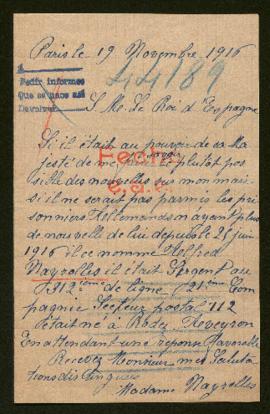 Paris le 19 Novembre 1916
44189
Pedir informes
Que se unos así
Devolver
S. M. Le Roi d'Espagne
Si il était au pouvoir de sa Ma
jesté de me le plutot pos
sible des nouvelles sur mon mari
si il ne serait pas parmis les pri
sonniers Allemands n ayant plus
de nouvelle de lui depuis le 25 juin
1916 il ce nomme Alfred
Mayrolles il était Sergent au
312ème de Ligne 21ème Com
pagnie Secteur postal 112
était né à Rodez Aveyron
En attendant une réponse favorable
Recevez Monsieur mes Saluta
tions distinguées
Madame Mayrolles